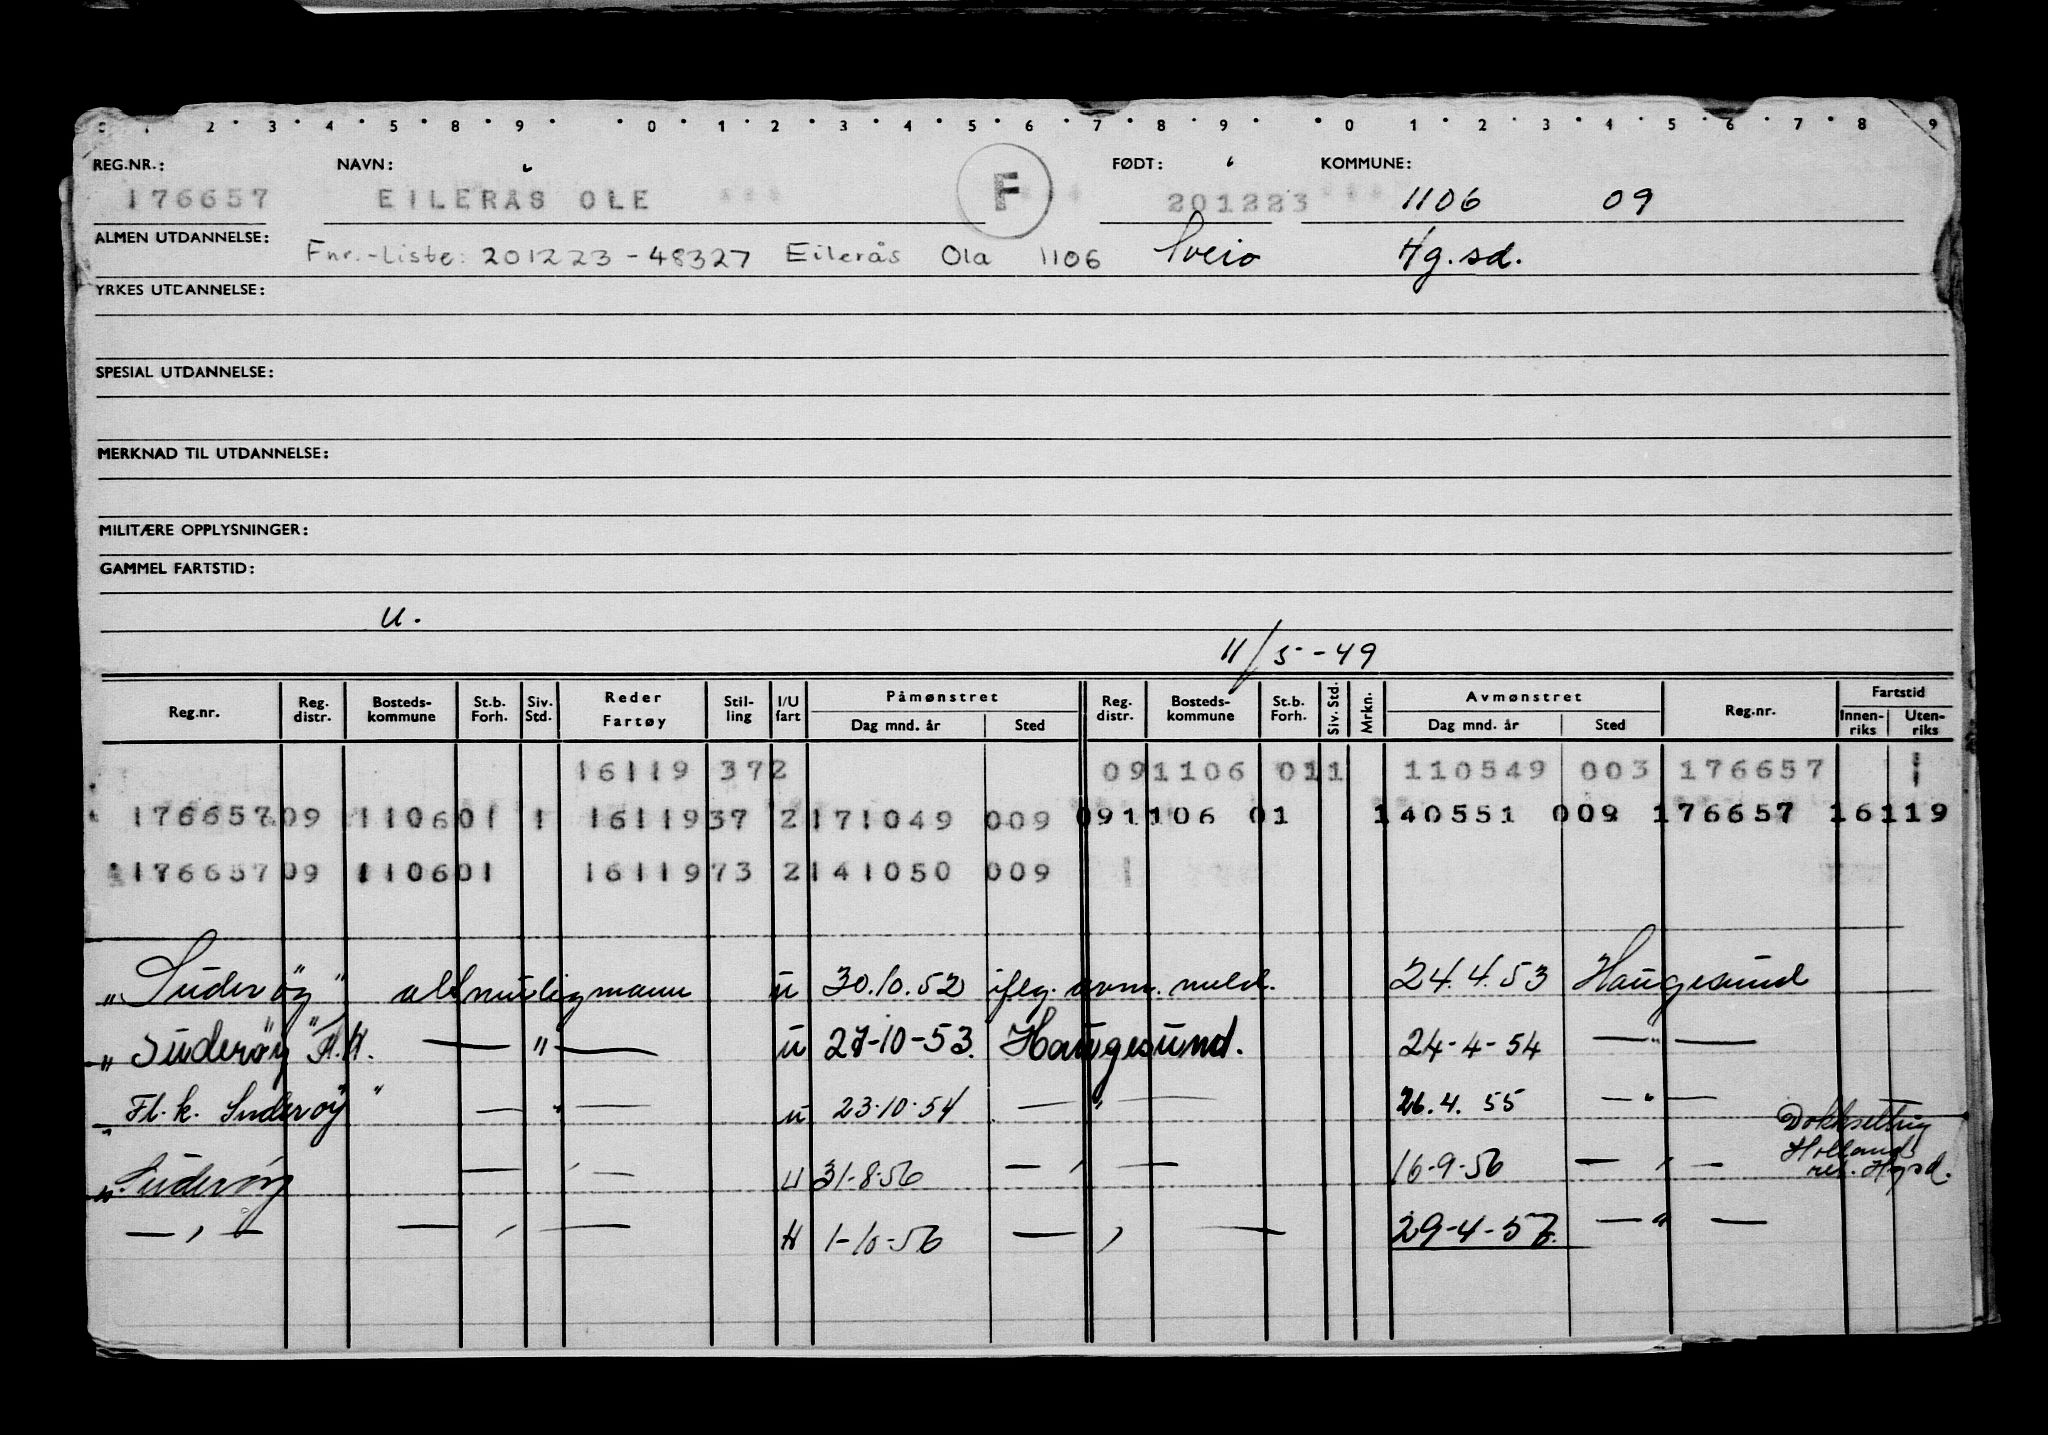 1 2 3 4 5 8 9 0 1 2 3 4 5 6 7 8 9 0 1 2 3 4 5 6 7 8 9
REG.NR.: NAVN: FØDT: KOMMUNE:
176657 EILERÅS OLE F 201223 1106 09
ALMEN UTDANNELSE: Fnr.-Liste: 201223-48327 Eilerås Ola 1106 Sveio Hg.sd.
YRKES UTDANNELSE:
SPESIAL UTDANNELSE:
MERKNAD TIL UTDANNELSE:
MILITÆRE OPPLYSNINGER:
GAMMEL FARTSTID:
U.
11/5-49
Reg.nr. Reg. distr. Bosteds-kommune St.b. Forh. Siv. Std. Reder Fartøy Stil-ling I/U fart Påmønstret Dag mnd. år Sted Reg. distr. Bosteds-kommune St.b. Forh. Siv. Std. Mrkn. Avmønstret Dag mnd. år Sted Reg.nr. Fartstid Innen-riks Uten-riks
16119 372 091106 011 110549 003 176657 1
176657 09 110601 1 16119 37 2 171049 009 091106 01 140551 009 176657 16119
176657 09 110601 16119 73 2 141050 009 1
"Suderöy" altmuligmann u 30.10.52 ifлg. avm. meld. 24.4.53 Haugesund
"Suderøy" Fl.K. — " — u 27-10-53. Haugesund. 24-4-54 — " —
"Fl.k. Suderøy" — " — u 23.10.54 — " — 26.4.55 — " —
"Suderøy — " — U 31-8-56 — " — 16-9-56 — " — Dokksetting Holland ret. Hgsd.
— " — — " — U 1-10-56 — " — 29-4-57. — " —